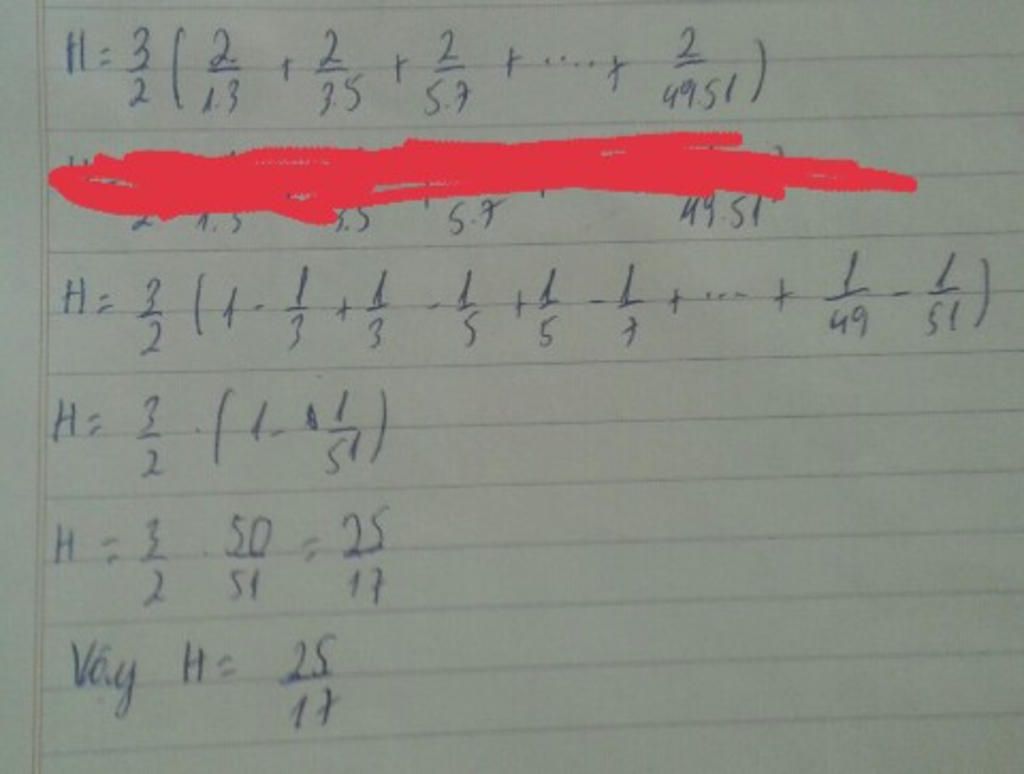 H = 3/2 ( 2/1.3 + 2/3.5 + 2/5.7 + .... + 2/49.51 )
2 1.3 3.5 5.7 49.51
H = 3/2 ( 1 - 1/3 + 1/3 - 1/5 + 1/5 - 1/7 + ... + 1/49 - 1/51 )
H = 3/2 . ( 1 - 1/51 )
H = 3/2 . 50/51 = 25/17
Vậy H = 25/17